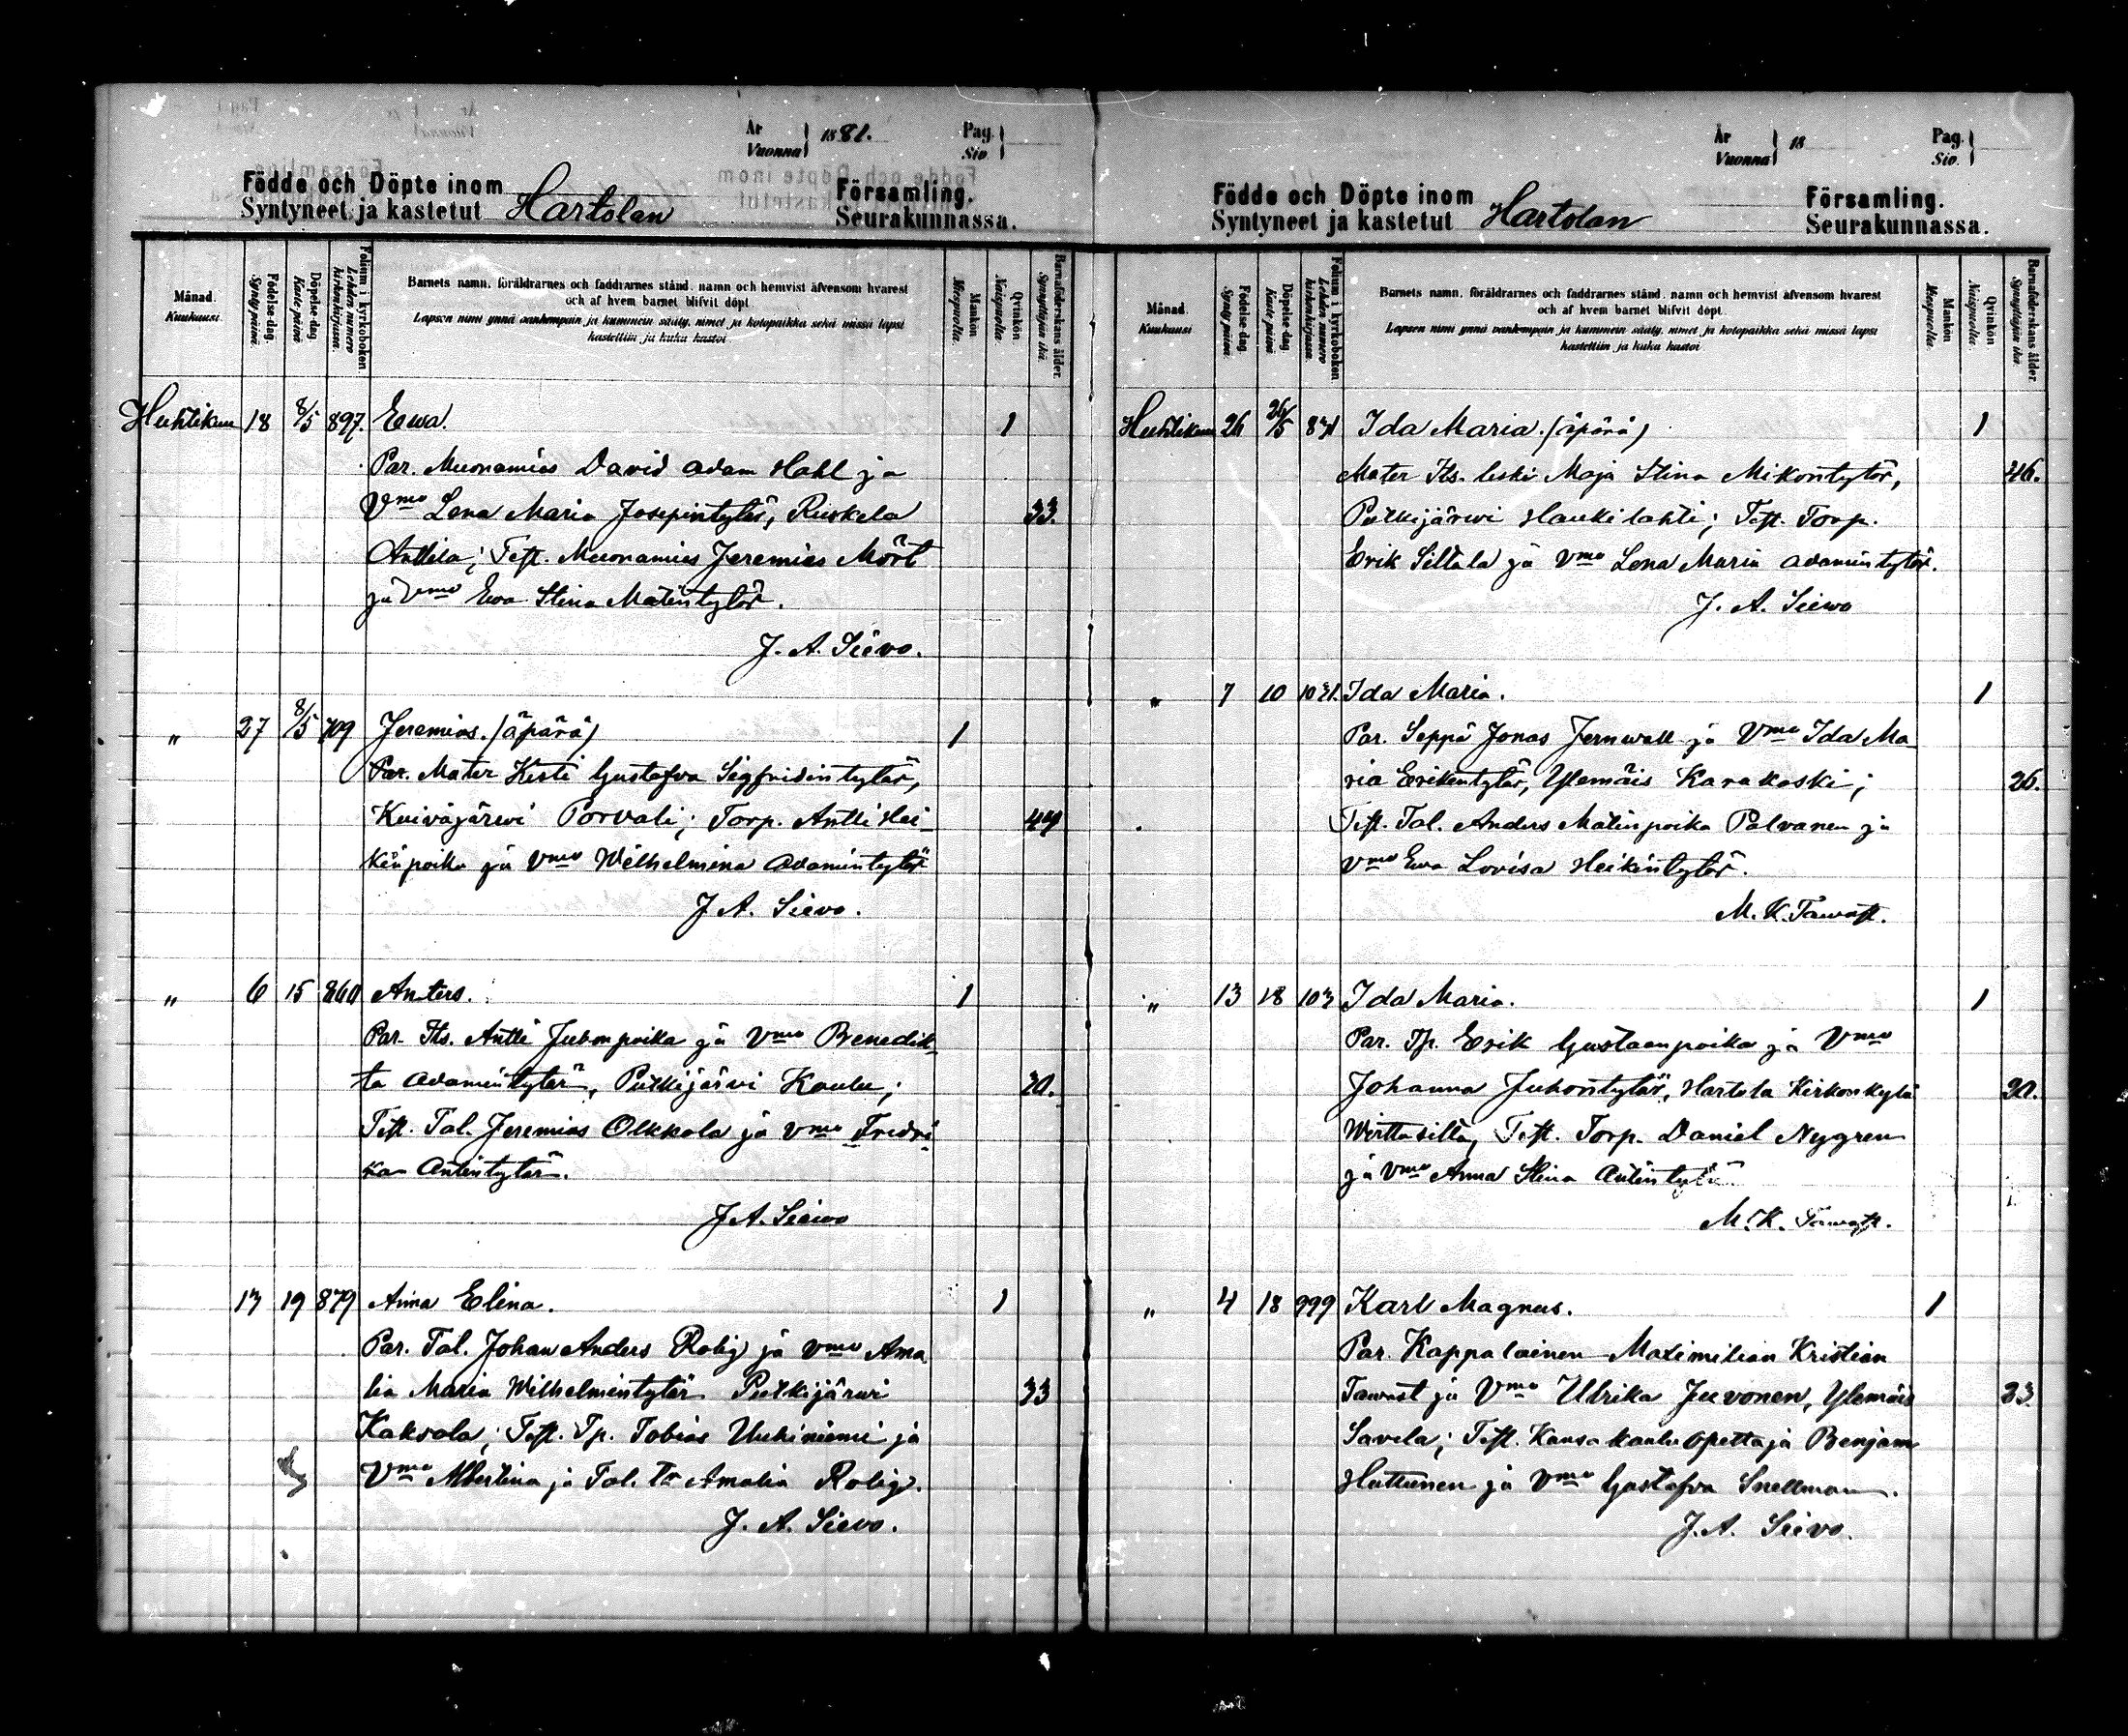 År
Vuonna 1881.
Pag.
Siv.
Födde och Döpte inom
Syntyneet ja kastetut Hartolan
Församling.
Seurakunnassa.
Månad.
Kuukausi.
Födelse-dag.
Syntypäivä.
Döpelse-dag.
Kastepäivä.
Folium i kyrkoboken.
Lehden numero kirkonkirjassa.
Barnets namn, föräldrarnes och faddrarnes stånd, namn och hemvist äfvensom hvarest
och af hvem barnet blifvit döpt.
Lapsen nimi ynnä vanhempain ja kummein sääty, nimet ja kotopaikka sekä missä lapsi
kastettiin ja kuka kastoi.
Mankön
Miespuolta.
Qvinkön
Naispuolta.
Barnaföderskans ålder.
Synnyttäjän ikä.
Huhtikuu 18 8/5 897. Ewa. 1
Par. Muonamies David Adam Hahl ja
Vmo Lena Maria Josepintytär, Ruskela 33.
Anttila; Test. Muonamies Jeremias Mört
ja Vmo Ewa Stina Matintytär.
J. A. Sievo.
" 27 8/5 709 Jeremias. (äpärä) 1
Par. Mater Kesti Gustafva Sigfridintytär,
Kuivajärwi Porvali; Torp. Antti Hei- 44
kinpoika ja Vmo Wilhelmina Adamintytär
J. A. Sievo.
" 6 15 860 Anters. 1
Par. Its. Antti Juhonpoika ja Vmo Benedik-
ta Adamintytär, Putkijärvi Koulu; 20.
Test. Tal. Jeremias Olkkola ja Vmo Fredri
ka Antintytär.
J. A. Sievo
13 19 879 Anna Elina. 1
Par. Tal. Johan Anders Rolig ja Vmo Ama
lia Maria Wilhelmintytär Putkijärwi 33
Kaksola; Test. Tp. Tobias Uuhiniemi ja
Vmo Albertina ja Tal. Tr Amalia Rolig.
J. A. Sievo.
År
Vuonna 18
Pag.
Siv.
Födde och Döpte inom
Syntyneet ja kastetut Hartolan
Församling.
Seurakunnassa.
Månad.
Kuukausi
Födelse-dag.
Syntypäivä.
Döpelse-dag.
Kastepäivä.
Folium i kyrkoboken.
Lehden numero kirkonkirjassa.
Barnets namn, föräldrarnes och faddrarnes stånd, namn och hemvist äfvensom hvarest
och af hvem barnet blifvit döpt.
Lapsen nimi ynnä vanhempain ja kummein sääty, nimet ja kotopaikka sekä missä lapsi
kastettiin ja kuka kastoi.
Mankön
Miespuolta.
Qvinkön
Naispuolta.
Barnaföderskans ålder.
Synnyttäjän ikä.
Huhtikuu 26 26/5 871 Ida Maria. (äpärä) 1
Mater Its. leski Maja Stina Mikontytör, 46.
Putkijärwi Haukilahti; Test. Torp.
Erik Siltala ja Vmo Lena Maria Adamintytör.
J. A. Siewo
" 7 10 1021. Ida Maria. 1
Par. Seppä Jonas Jernwall ja Vmo Ida Ma
ria Erikintytär, Ylemäis Karakoski; 26.
Test. Tal. Anders Matinpoika Palvanen ja
Vmo Ewa Lovisa Heikintytär.
M. K. Tawast.
" 13 18 103 Ida Maria. 1
Par. Tp. Erik Gustaanpoika ja Vmo
Johanna Juhontytär, Hartola Kirkonkylä 20.
Test. Torp. Daniel Nygren
ja Vmo Anna Stina Antintytär
M. K. Tawast.
" 4 18 999 Karl Magnus. 1
Par. Kappalainen Maximilian Kristian
Tawast ja Vmo Ulrika Juvonen, Ylemäis 23
Savela; Test. Kansakoulu opettaja Benjam
Huttunen ja Vmo Gustafva Snellman.
J. A. Sievo.